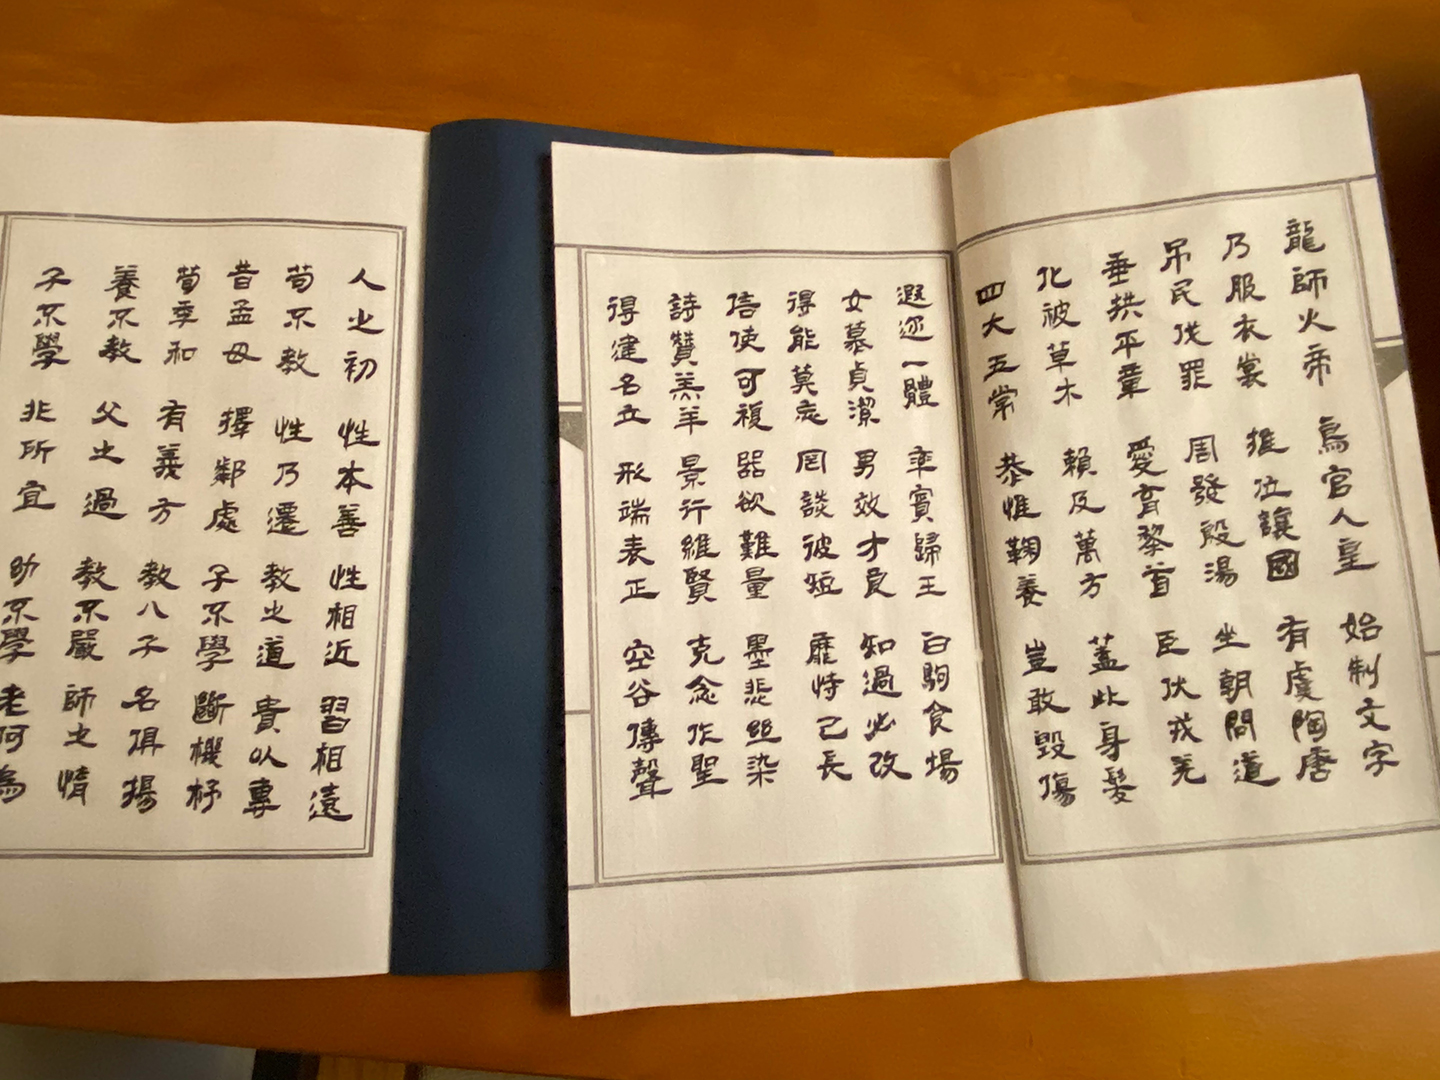 龍師火帝 鳥官人皇 始制文字
乃服衣裳 推位讓國 有虞陶唐
吊民伐罪 周發殷湯 坐朝問道
垂拱平章 愛育黎首 臣伏戎羌
化被草木 賴及萬方 蓋此身髮
四大五常 恭惟鞠養 豈敢毀傷
遐迩一體 率賓歸王 白駒食場
女慕貞潔 男效才良 知過必改
得能莫忘 罔談彼短 靡恃己長
信使可複 器欲難量 墨悲丝染
詩贊羔羊 景行維賢 克念作聖
得建名立 形端表正 空谷傳聲
人之初 性本善 性相近 習相遠
苟不教 性乃遷 教之道 貴以專
昔孟母 擇鄰處 子不學 斷機杼
荀季和 有義方 教八子 名俱揚
養不教 父之過 教不嚴 師之情
子不學 非所宜 幼不學 老何為